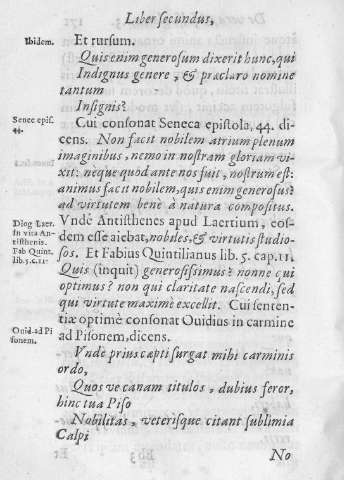 Liber secundus,
Ibidem.
Et rursum.
Quis enim generosum dixerit hunc, qui
Indignus genere, & præclaro nomine
tantum
Insignis?
Senec epis.
44.
Cui consonat Seneca epistola, 44. di-
cens. Non facit nobilem atrium plenum
imaginibus, nemo in nostram gloriam vi-
xit: neque quod ante nos fuit, nostrum est:
animus facit nobilem, quis enim generosus?
ad virtutem bene à natura compositus.
Diog Laer.
in vita An-
tisthenis.
Fab Quint.
lib.5.c.11.
Vndè Antisthenes apud Laertium, eos-
dem esse aiebat, nobiles, & virtutis studio-
sos. Et Fabius Quintilianus lib. 5. cap. 11.
Quis (inquit) generosissimus? nonne qui
optimus? non qui claritate nascendi, sed
qui virtute maximè excellit. Cui senten-
tiæ optimè consonat Ouidius in carmine
ad Pisonem, dicens.
Ouid ad Pi
sonem.
Vnde prius cæpti surgat mihi carminis
ordo,
Quos ve canam titulos, dubius feror,
hinc tua Piso
Nobilitas, veterisque citant sublimia
Calpi
No